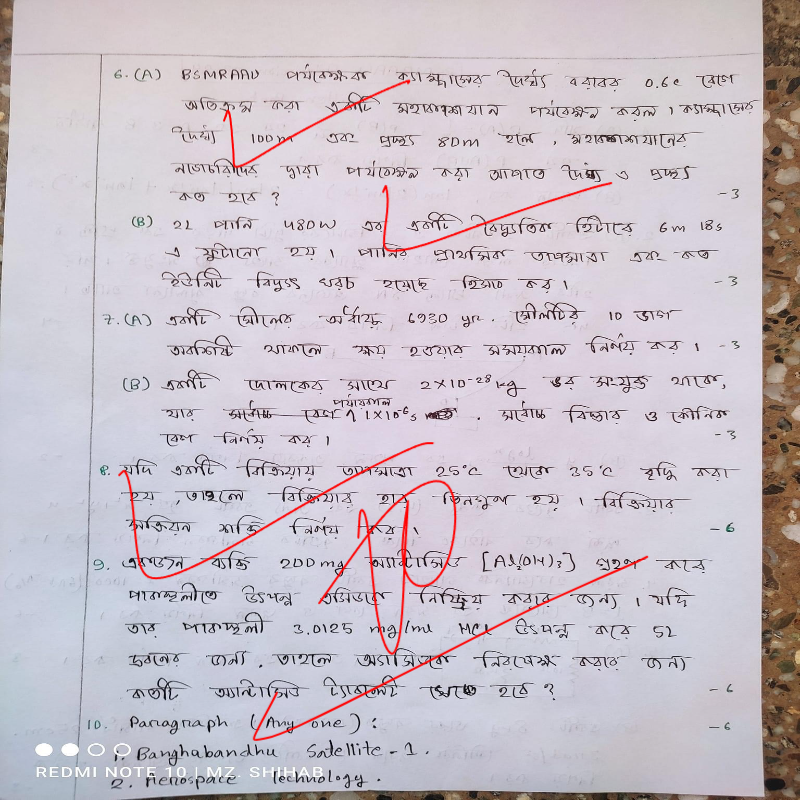 6. (A) BSMRAAU পর্যবেক্ষক ক্যাম্পাসের দৈর্ঘ্য বরাবর 0.6c বেগে
অতিক্রম করা একটি মহাকাশযান পর্যবেক্ষন করল। ক্যাম্পাসের
দৈর্ঘ্য 100m এবং প্রস্থ 80m হলে, মহাকাশযানের
নভোচারীদের দ্বারা পর্যবেক্ষন করা আপাত দৈর্ঘ্য ও প্রস্থ
কত হবে? -3
(B) 2L পানি 480W এর একটি বৈদ্যুতিক হিটারে 6m 18s
এ ফুটানো হয়। পানির প্রাথমিক তাপমাত্রা এবং কত
ইউনিট বিদ্যুৎ খরচ হয়েছে হিসাব কর। -3
7. (A) একটি মৌলের অর্ধায়ু 6930 yr. মৌলটির 10 ভাগ
অবশিষ্ট থাকলে ক্ষয় হওয়ার সময়কাল নির্ণয় কর। -3
(B) একটি দোলকের সাথে 2×10⁻²⁸kg ভর সংযুক্ত থাকে,
যার পর্যায়কাল 1×10⁻⁶s . সর্বোচ্চ বিস্তার ও কৌনিক
বেগ নির্ণয় কর। -3
8. যদি একটি বিক্রিয়ায় তাপমাত্রা 25°C থেকে 35°C বৃদ্ধি করা
হয় তাহলে বিক্রিয়ার হার তিনগুণ হয়। বিক্রিয়ার
সক্রিয়ন শক্তি নির্ণয় কর। -6
9. একজন ব্যক্তি 200mg অ্যান্টাসিড [Al(OH)₃] গ্রহণ করে
পাকস্থলীতে উৎপন্ন এসিডকে নিষ্ক্রিয় করার জন্য। যদি
তার পাকস্থলী 3.0125 mg/ml HCl উৎপন্ন করে 5L
দ্রবনের জন্য, তাহলে অ্যাসিডকে নিরপেক্ষ করার জন্য
কতটি অ্যান্টাসিড ট্যাবলেট খেতে হবে? -6
10. Paragraph (Any one): -6
1. Banghabandhu Satellite-1.
2. Aerospace Technology.
REDMI NOTE 10 | MZ. SHIHAB